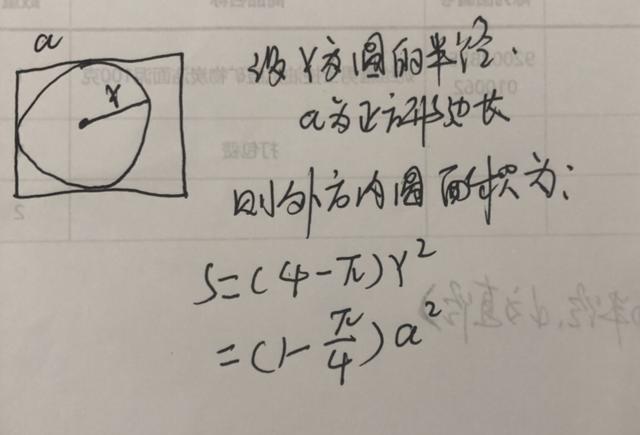 a
r
设r为圆的半径.
a为正方形边长
则外方内圆面积为:
S=(4-π)r²
=(1-π/4)a²